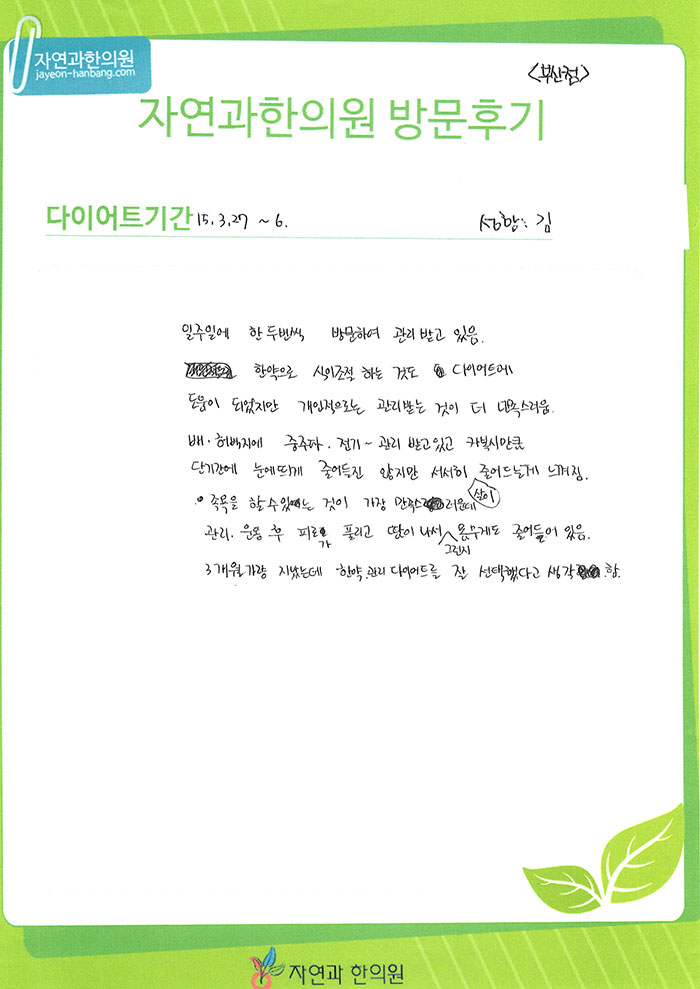 자연과한의원
jayeon-hanbang.com
<부산점>
자연과한의원 방문후기
다이어트기간 15.3.27 ~ 6. 성함: 김
일주일에 한두번씩 방문하여 관리받고 있음.
한약으로 식이조절 하는 것도 다이어트에
도움이 되었지만 개인적으로는 관리받는 것이 더 만족스러움.
배·허벅지에 중주파. 전기~ 관리 받고있고 카복시만큼
단기간에 눈에띄게 줄어들진 않지만 서서히 줄어드는게 느껴짐.
족욕을 할수있는 것이 가장 만족스러운데 살이
관리. 운동 후 피로가 풀리고 땀이나서 그런지 몸무게도 줄어들어 있음.
3개월가량 지났는데 한약.관리 다이어트를 잘 선택했다고 생각함.
자연과 한의원